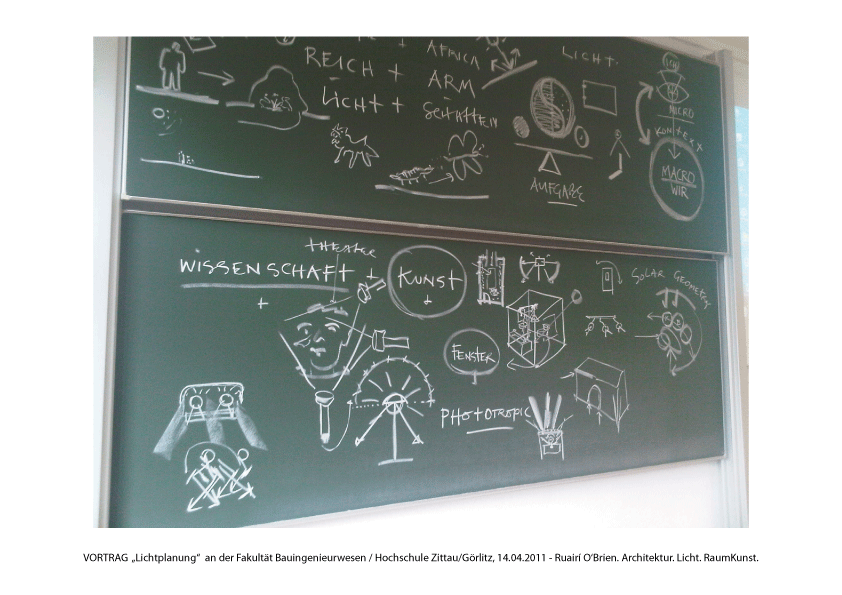 REICH + ARM
AFRICA
LICHT + SCHATTEN
LICHT.
AUFGABE
ICH
MICRO
KONTEXT
MACRO
WIR
THEATER
WISSENSCHAFT + KUNST
+
+
FENSTER
SOLAR GEOMETRY
PHOTOTROPIC
VORTRAG „Lichtplanung“ an der Fakultät Bauingenieurwesen / Hochschule Zittau/Görlitz, 14.04.2011 - Ruairí O’Brien. Architektur. Licht. RaumKunst.